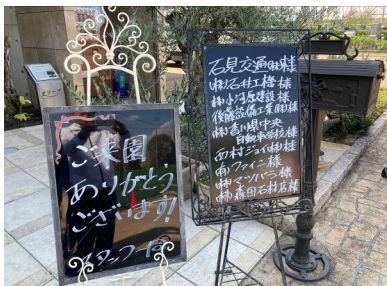 ご来園
ありがとう
ございます!
スタッフ一同
石見交通㈱様
㈱石井工務様
㈱小河原建設様
後藤設備工業㈱様
㈱香川県中央
自動車学校様
西村ジョイ㈱様
㈲ファイン様
㈱マツバラ様
㈱森田石材店様